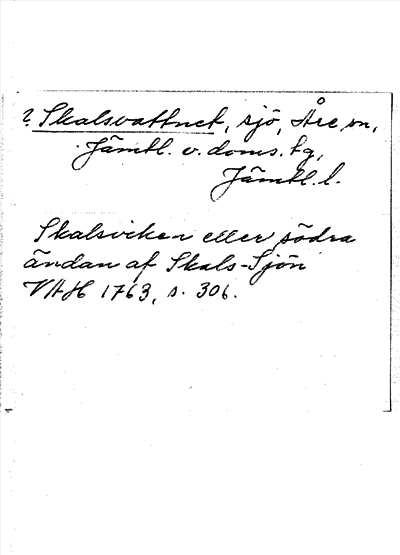 ? Skalsvattnet, sjö, Åre sn,
Jämtl. v. doms. tg,
Jämtl. l.
Skalsviken eller södra
ändan af Skals-Sjön
VAH 1763, s. 306.